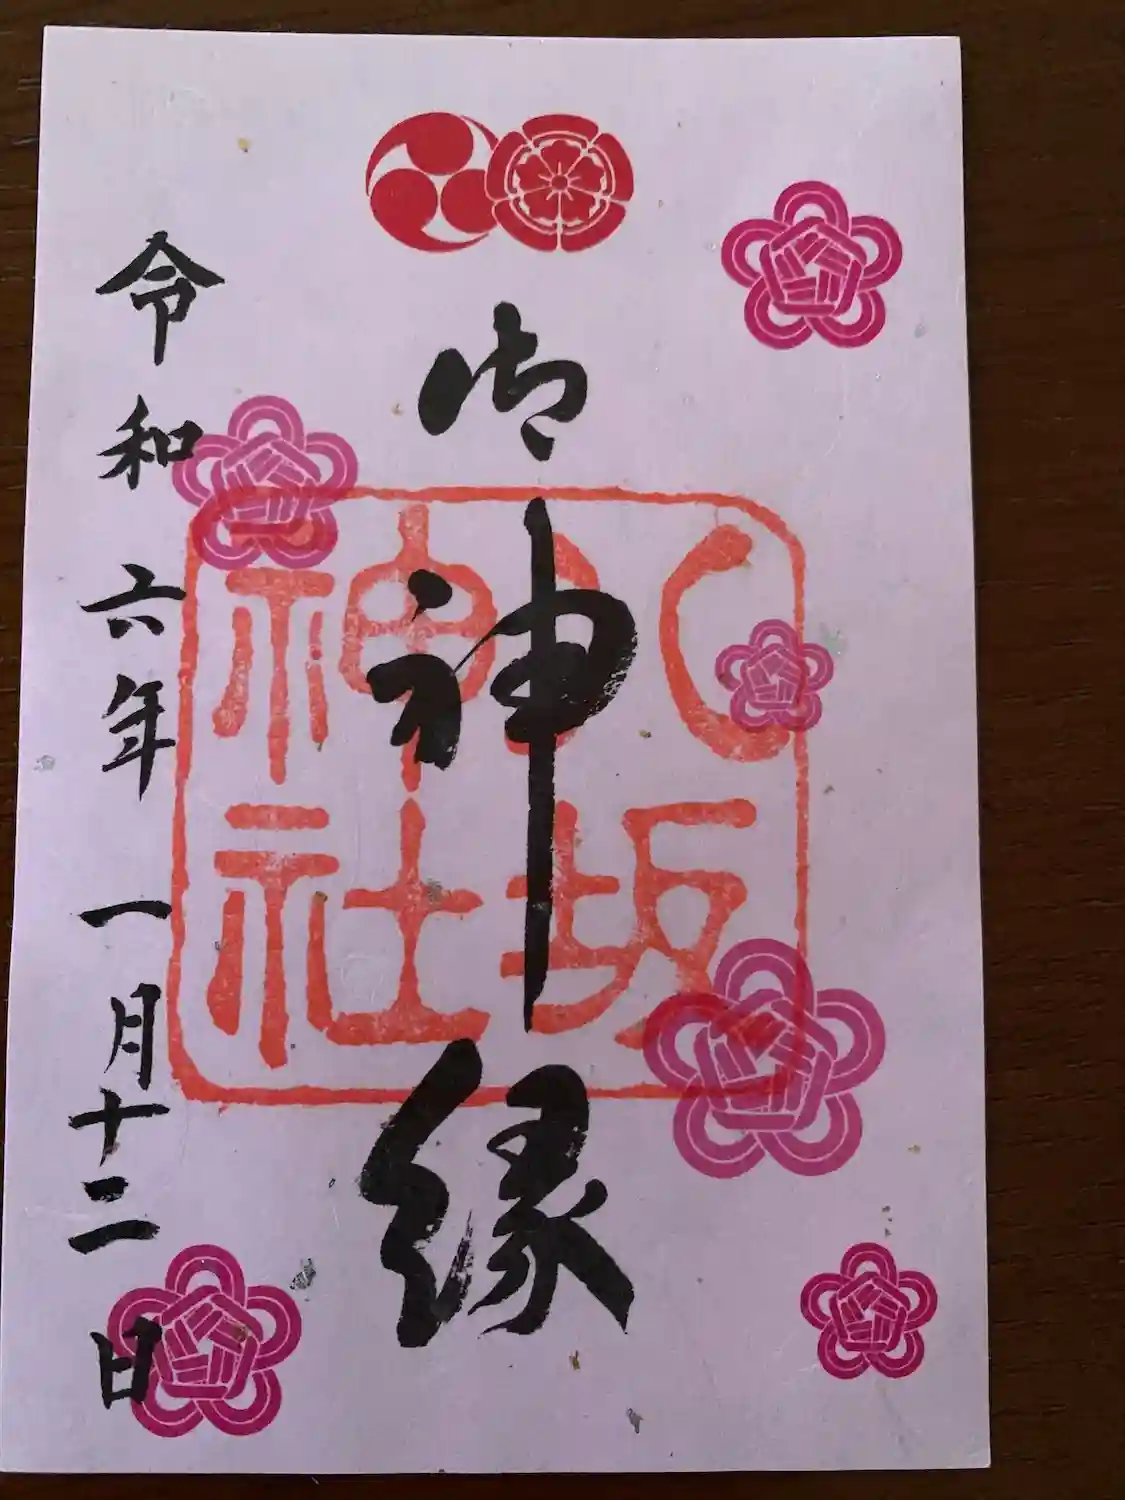 御神縁
八坂
神社
令和六年 一月十二日